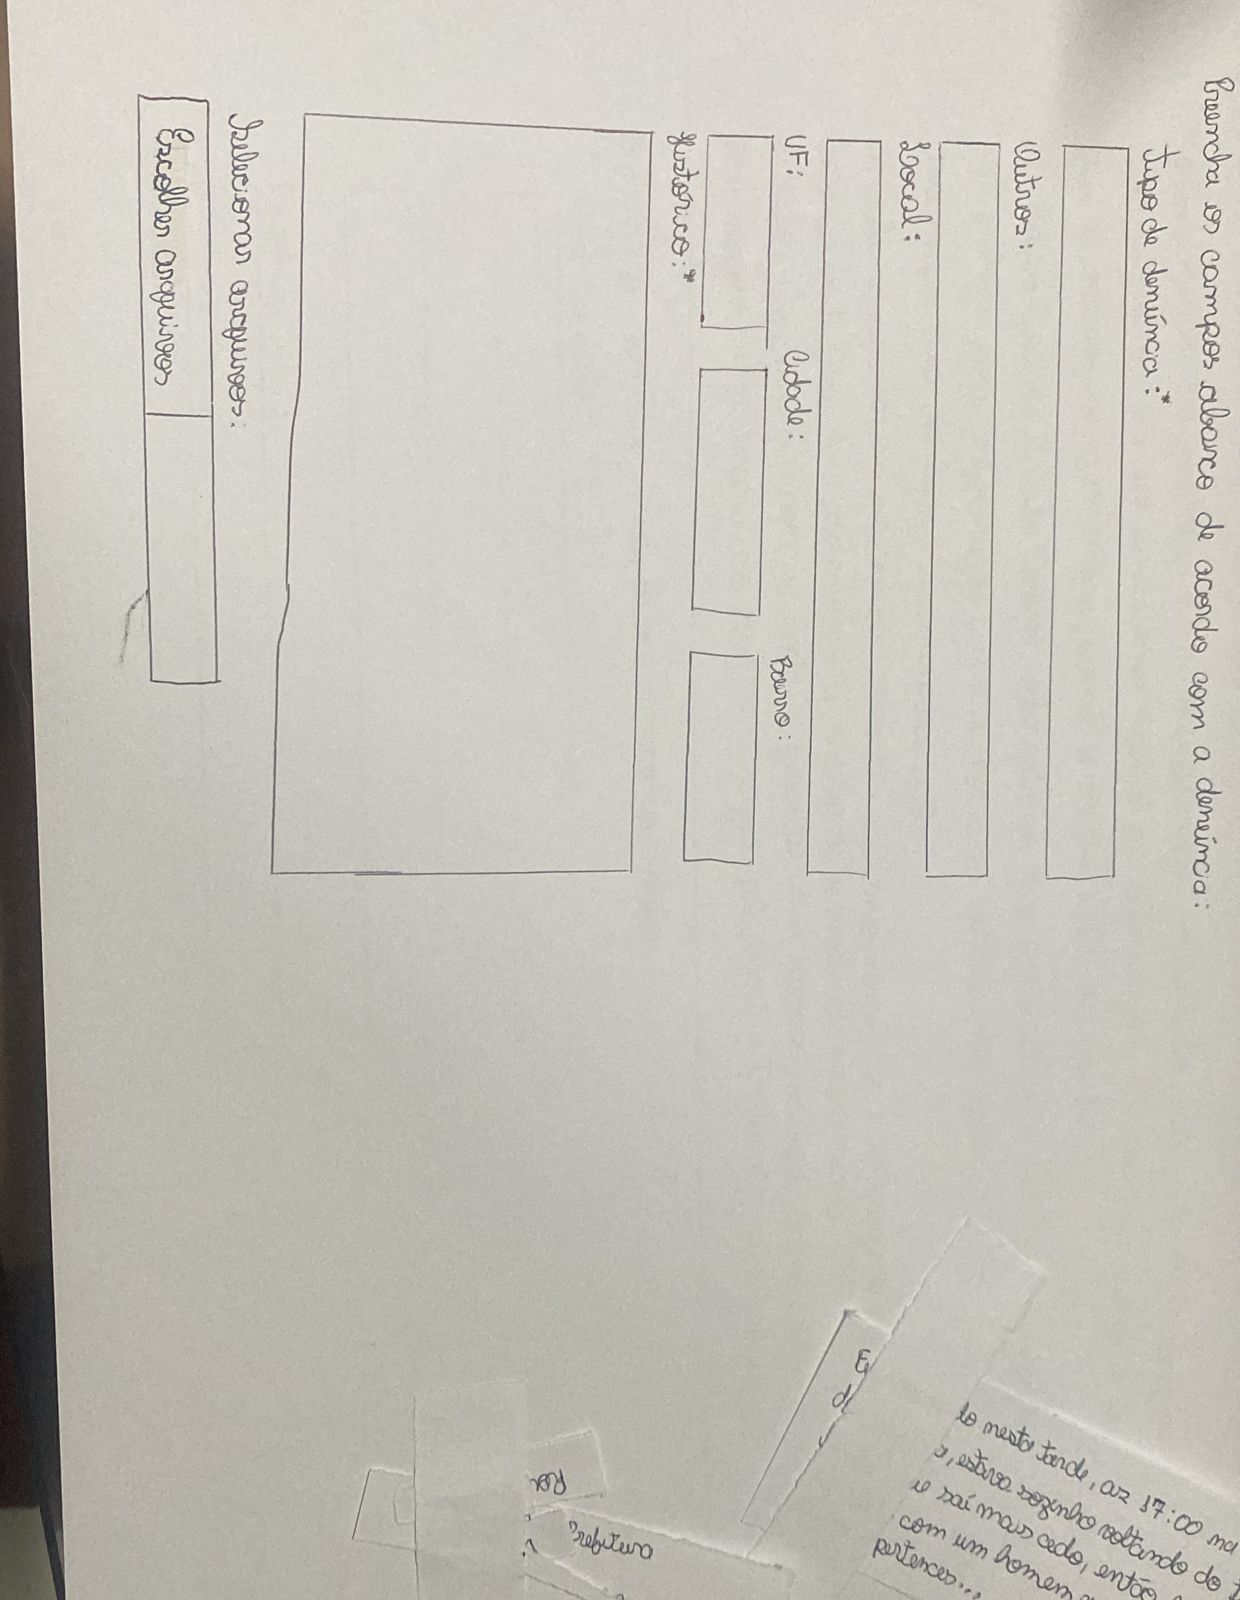 Preencha os campos abaixo de acordo com a denúncia:
tipo de denúncia:*
Outros:
Local:
UF: Cidade: Bairro:
Histórico:*
Selecionar arquivos:
Escolher arquivos
do nesta tarde, as 17:00 na
estava sozinho voltando do
e saí mais cedo, então
com um homem
pertences...
E
d
Prefeitura
Por